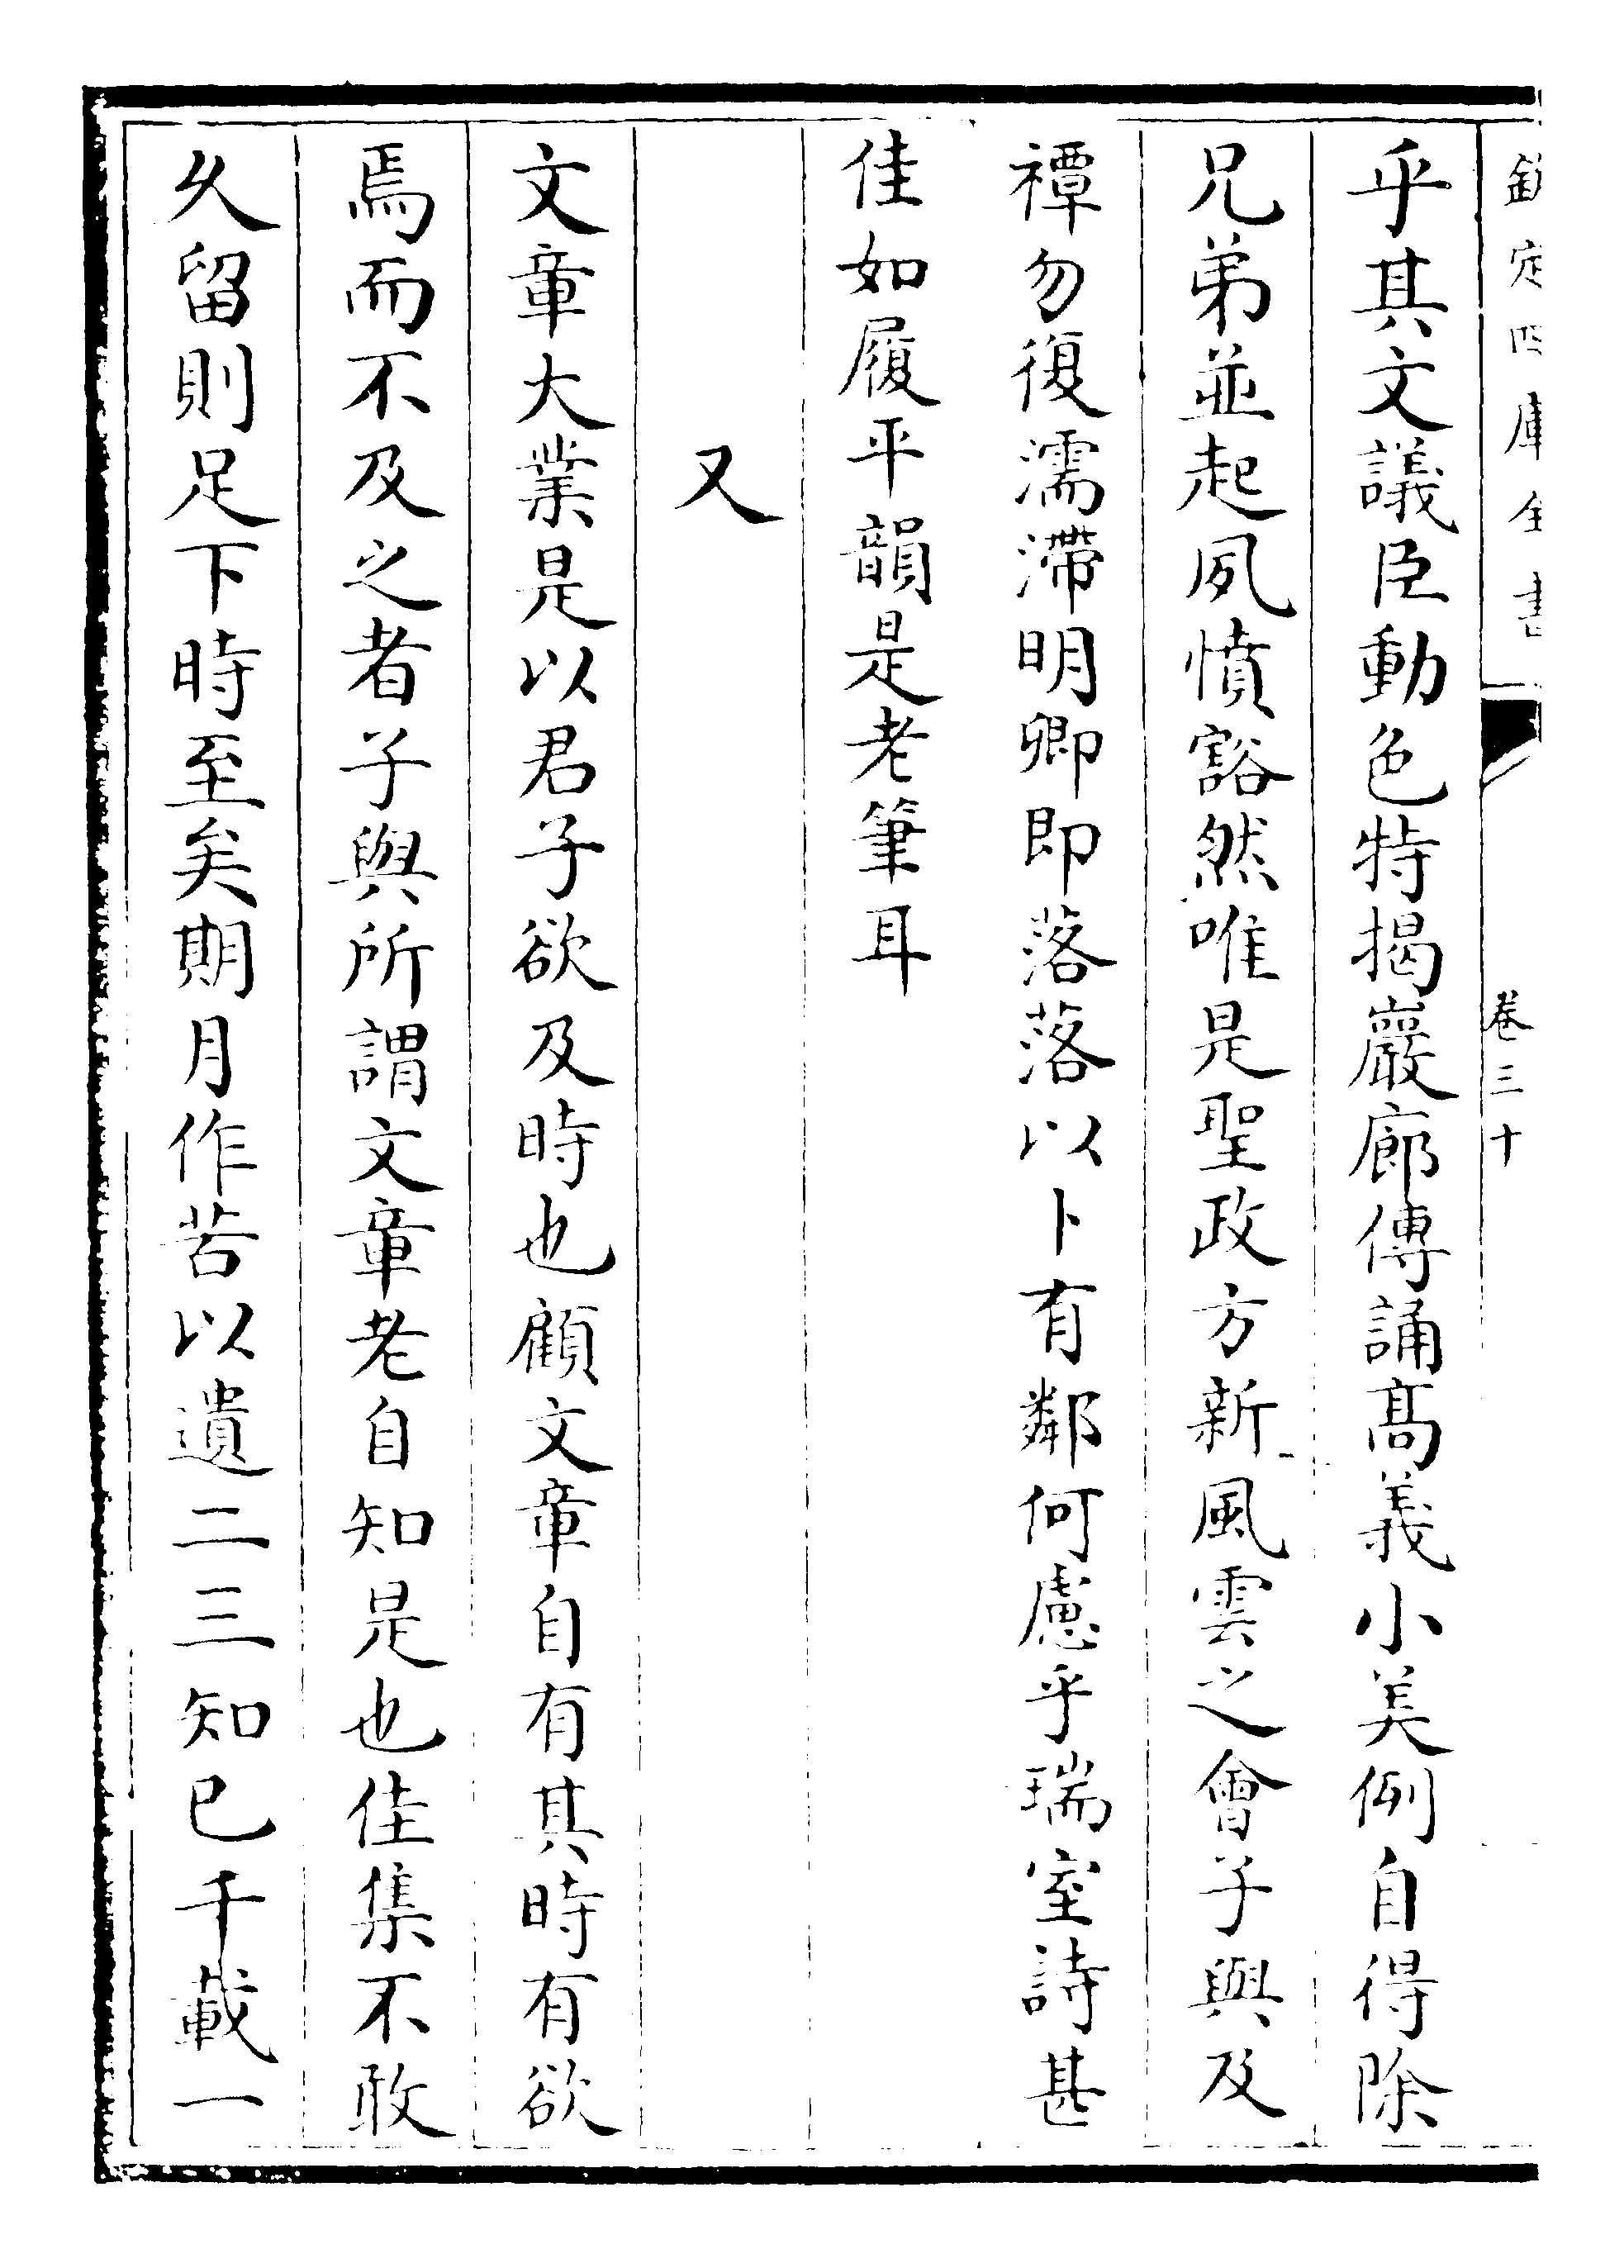 欽定四庫全書
卷三十
乎其文議臣動色特揭巖廊傳誦髙義小美例自得除
兄弟並起夙憤豁然唯是聖政方新風雲之會子與及
禫勿復濡滯明卿即落落以卜有鄰何慮乎瑞室詩甚
佳如履平韻是老筆耳
又
文章大業是以君子欲及時也顧文章自有其時有欲
焉而不及之者子與所謂文章老自知是也佳集不敢
乆留則足下時至矣期月作苦以遺二三知已千載一